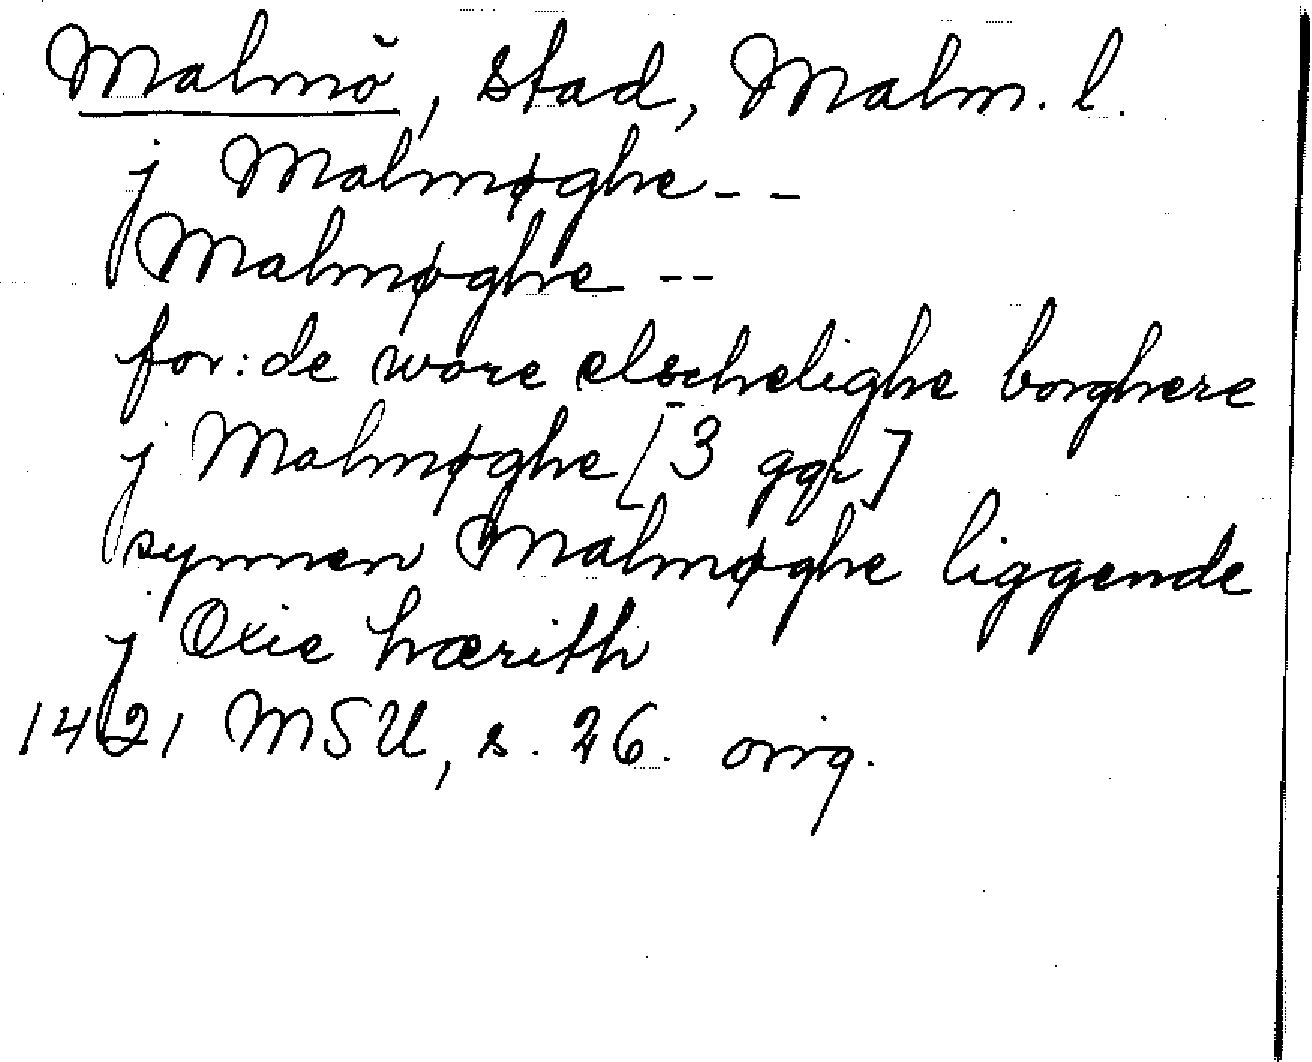 Malmö, stad, Malm. l.
j Malmøghe - -
Malmøghe - -
for:de wore elschelighe borghere
j Malmøghe [3 ggr]
synnen Malmøghe liggende
j Oxie hærith
1421 MSU, s. 26. orig.